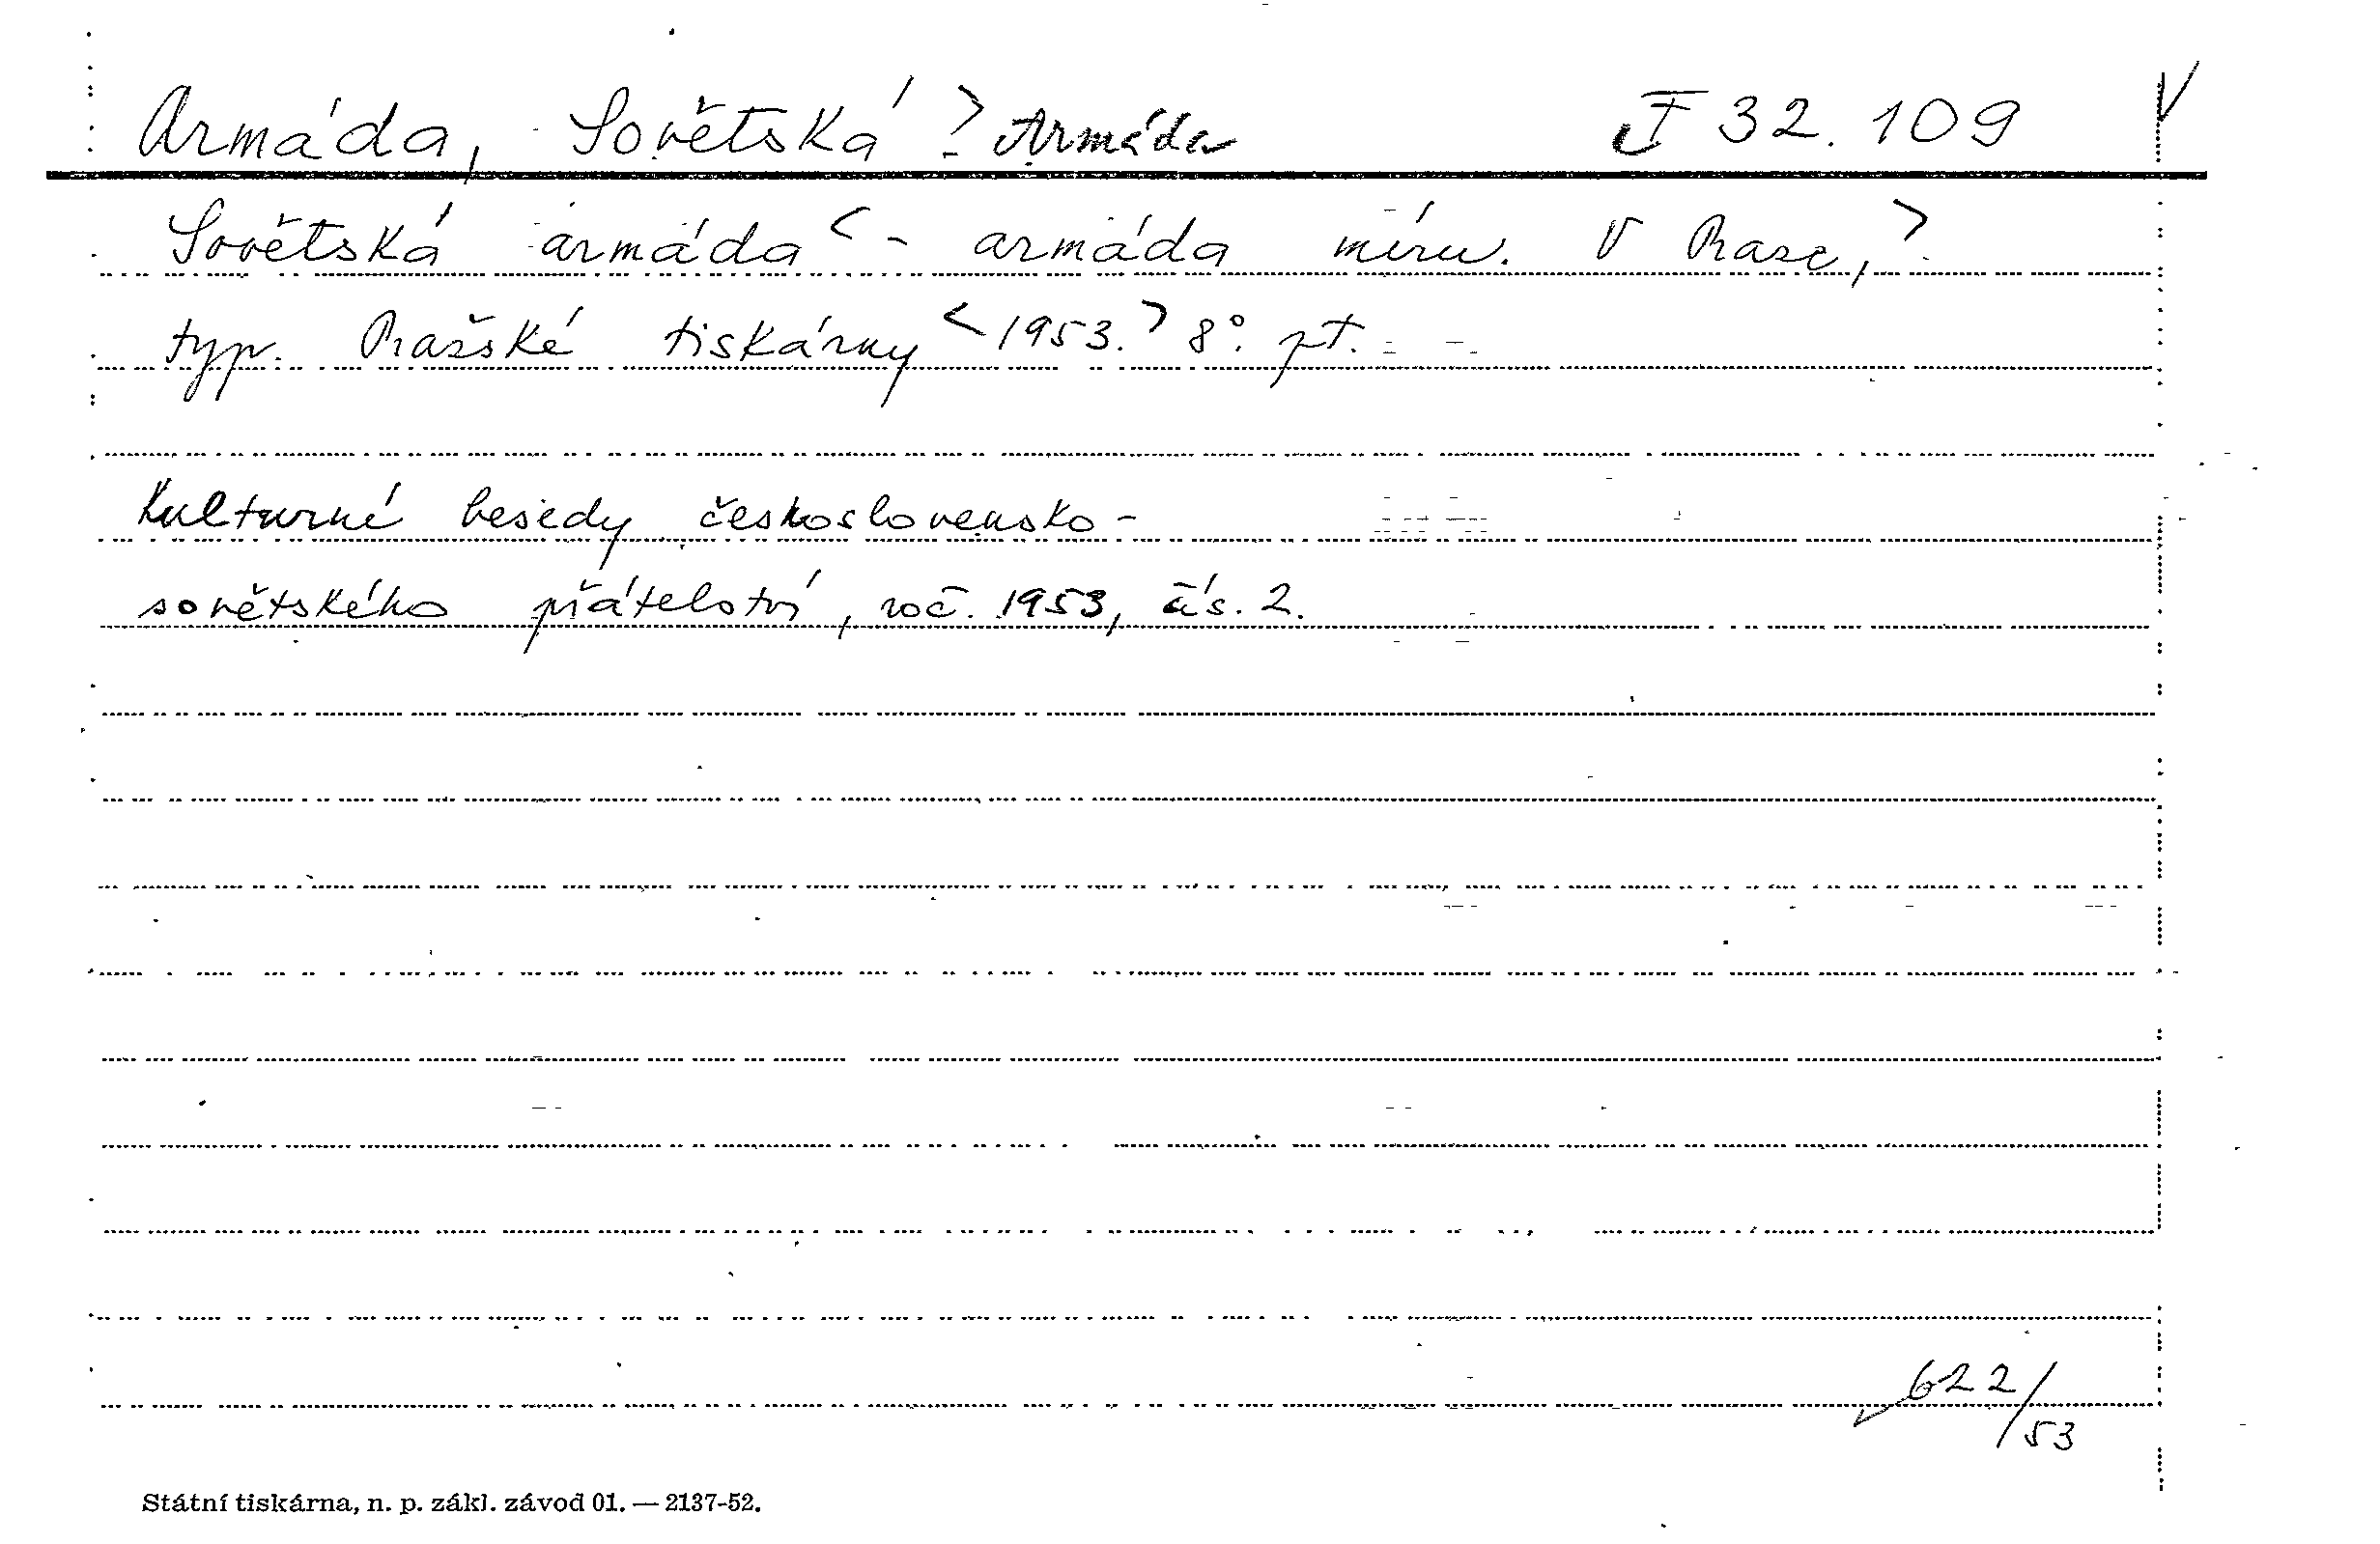 Armáda, Sovětská > - Armáda I 32.109
Sovětská armáda < - armáda míru. V Praze, >
typ. Pražské tiskárny < 1953. > 8°. pt.
Kulturné besedy československo-
sovětského přátelství, roč. 1953, čís. 2.
622/53
Státní tiskárna, n. p. zákl. závod 01. — 2137-52.